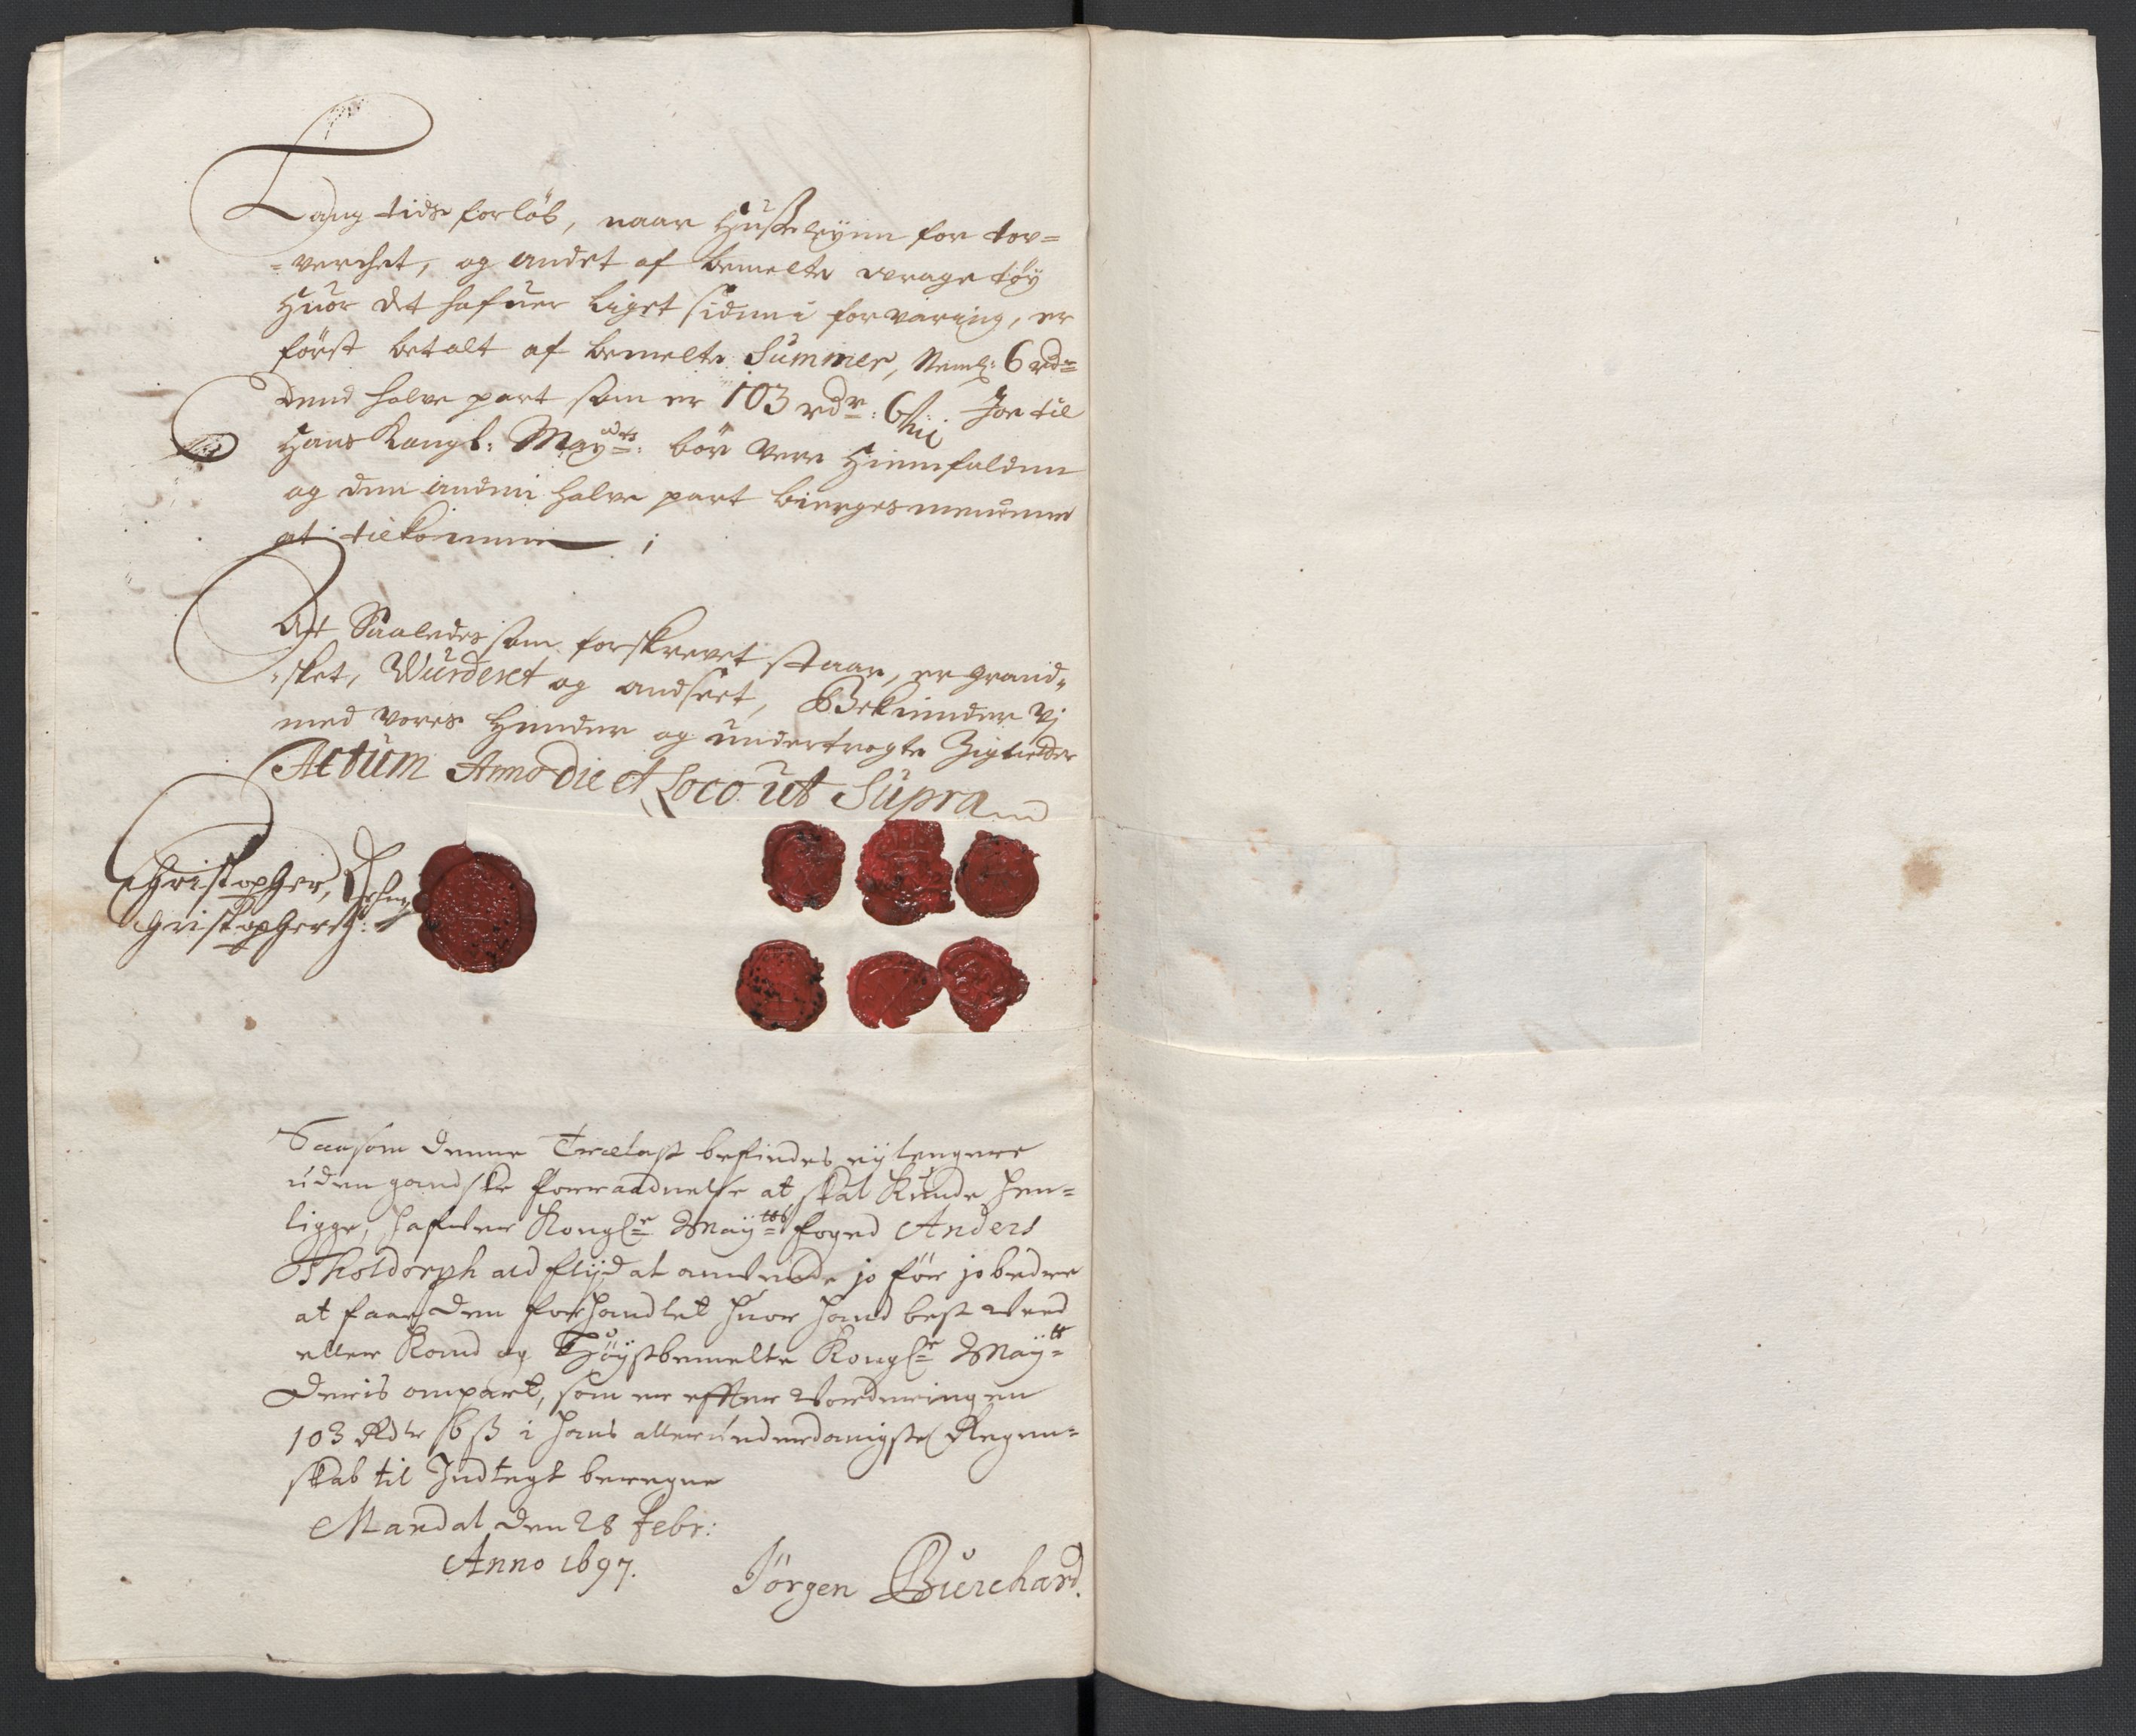 Lang tids forløb, naar Huusleyen for tov=
=verchet, og andet af bemelte vrage tøy
Huor det hafuer liget siden i forvaring, er
først betalt af bemelte Summer, Neml: 6 rdr
Dend halve part som er 103 rdr: 6 til
Hans Kongl: Mayts: bør være Hiemfalden
og den anden halve part biergesmendene
at tilkomme
At Saaledes som forskrevet staar, er grand=
sket, Wurderet og andseet, Bekiender Vj
med vores Hender og undertrogte Zigneder
Actum Anno die et Loco ut Supra
Christopher
Christophers:
Saasom denne Trælast befindes ey lengere
uden gandske forraadnelse at skal Kunde hen=
ligge, hafuer Kongl: Mayts foged Anders
Tholdorph ald flijd at anvende jo før jo bedre
at faae den forhandlet huor hand best veed
eller Kand og Høystbemelte Kongl: Mayt
Deris anpart, som er effter Vorderingen
103 Rdr 6 ß i hans allerunderdanigste Regen=
skab til Indtegt beregne
Mandal den 28 Febr:
Anno 1697.
Jørgen Burchard.